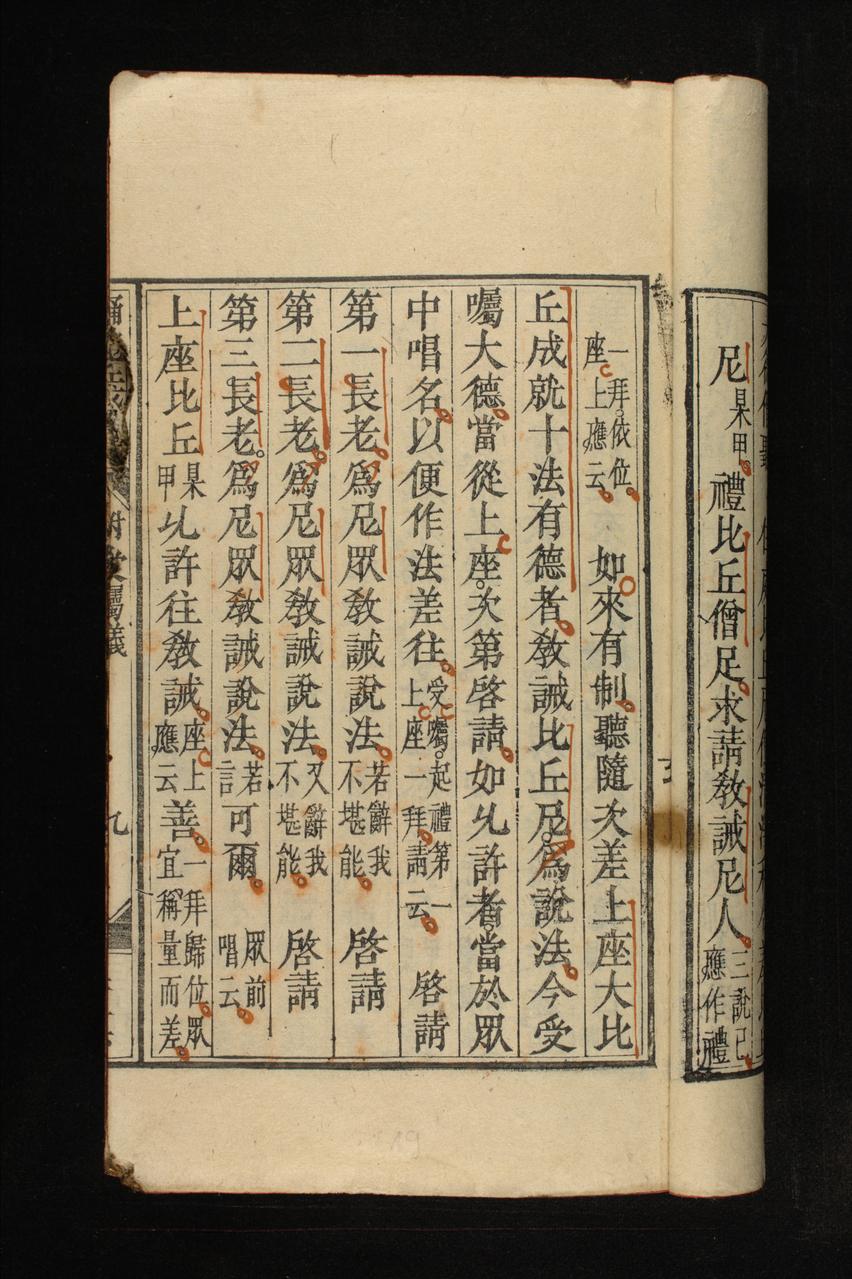 尼某甲禮比丘僧足求請敎誡尼人三說已應作禮
一拜依位座上應云 如來有制聽隨次差上座大比
丘成就十法有德者敎誡比丘尼爲說法今受
囑大德當從上座次第啓請如允許者當於眾
中唱名以便作法差往受囑起禮第一上座一拜請云 啓請
第一長老爲尼眾敎誡說法若辭我不堪能 啓請
第二長老爲尼眾敎誡說法又辭我不堪能 啓請
第三長老爲尼眾敎誡說法若言可爾 眾前唱云
上座比丘某甲允許往敎誡座上應云善一拜歸位眾宜稱量而差
附受囑儀 九
19